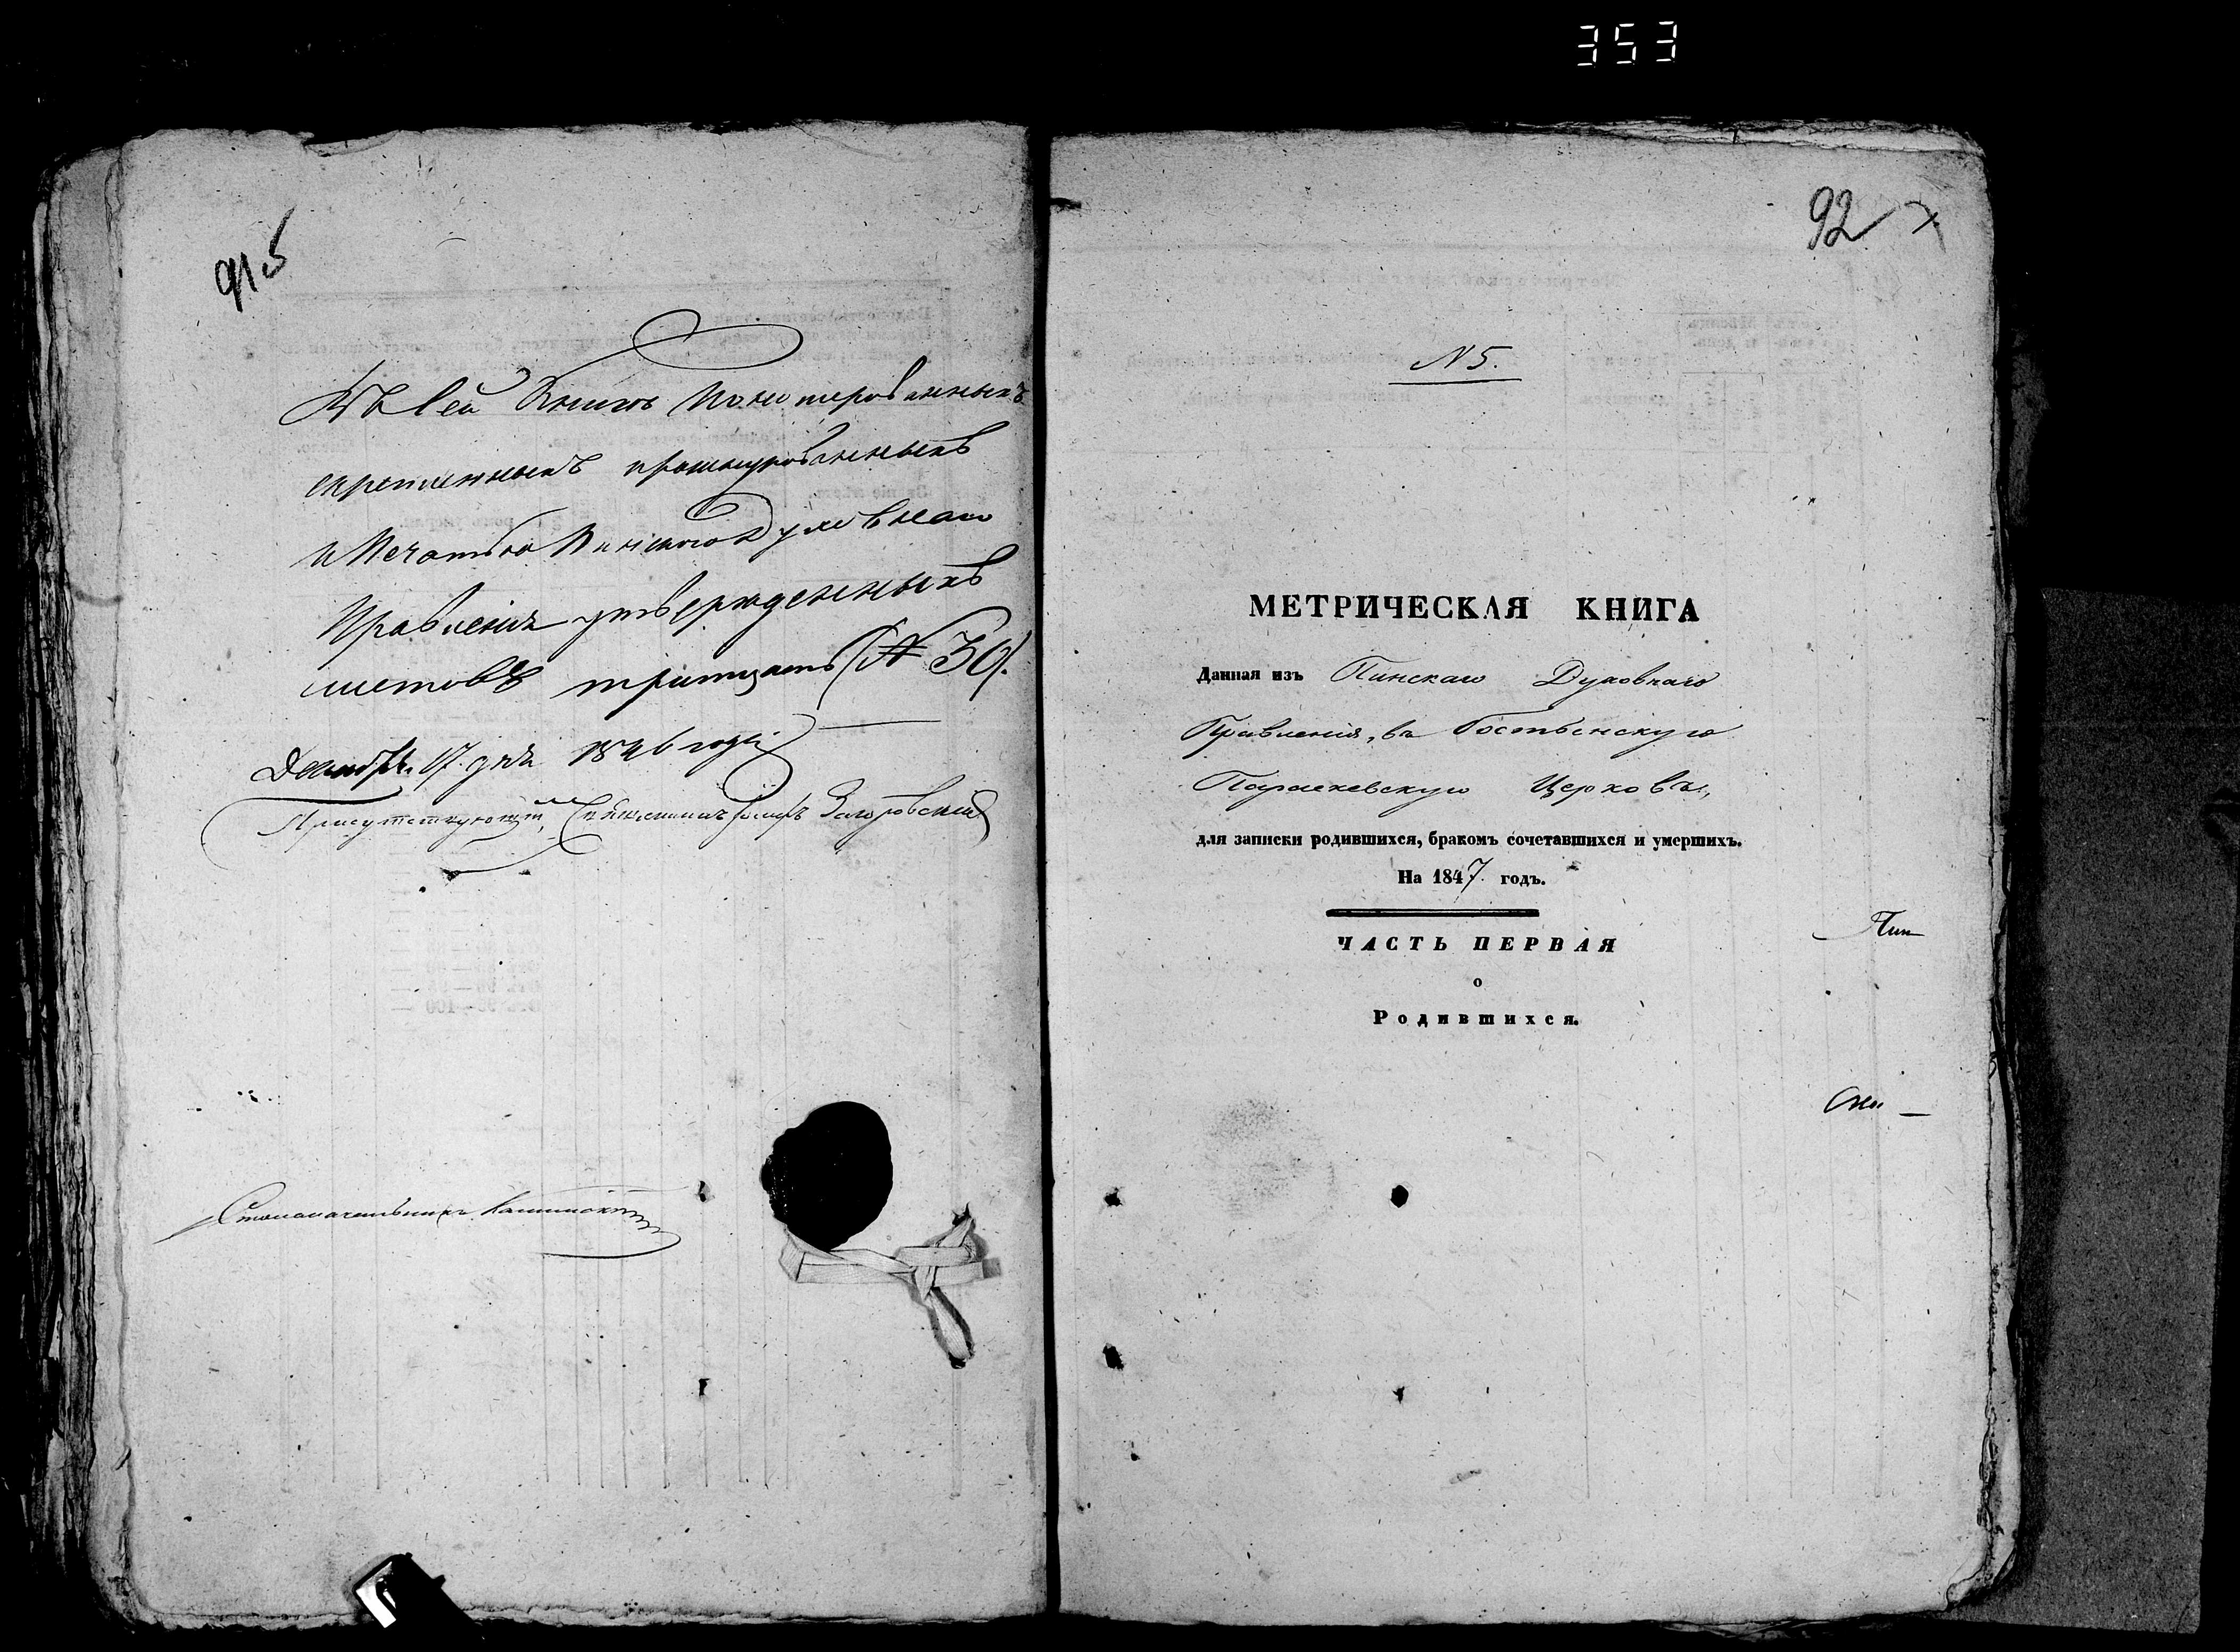 353
91об
Въ сей Книгѣ Нонумерованныхъ
скрепленныхъ прошнурованныхъ
и Печатью Пинского Духовнаго
Правленія утвержденныхъ
листовъ тритцать (№ 30).
Декабря 17. дня 1846 года
Присутствующій, Священникъ Загоровскій
Столоначальникъ
92
N 5.
МЕТРИЧЕСКАЯ КНИГА
Данная изъ Пинскаго Духовнаго
Правленія, въ Гостьенскую
Параскевскую Церковь,
для записки родившихся, бракомъ сочетавшихся и умершихъ.
На 1847. годъ.
ЧАСТЬ ПЕРВАЯ
о
Родившихся.
Пин